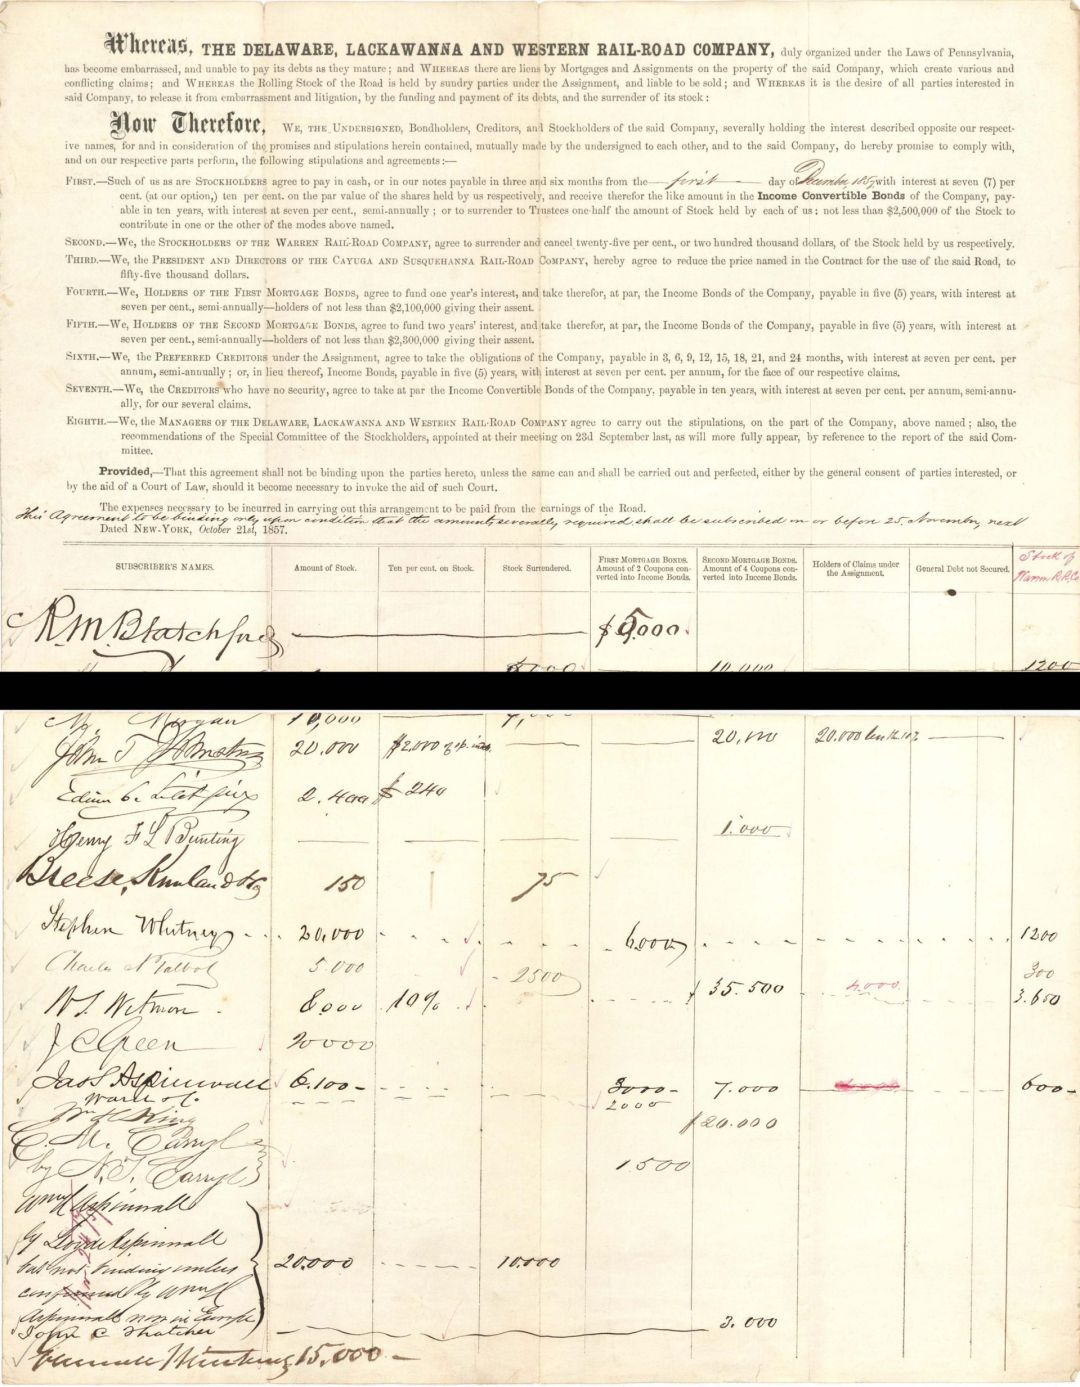 Whereas, THE DELAWARE, LACKAWANNA AND WESTERN RAIL-ROAD COMPANY, duly organized under the Laws of Pennsylvania,
has become embarrassed, and unable to pay its debts as they mature; and WHEREAS there are liens by Mortgages and Assignments on the property of the said Company, which create various and
conflicting claims; and WHEREAS the Rolling Stock of the Road is held by sundry parties under the Assignment, and liable to be sold; and WHEREAS it is the desire of all parties interested in
said Company, to release it from embarrassment and litigation, by the funding and payment of its debts, and the surrender of its stock:
Now Therefore, WE, THE UNDERSIGNED, Bondholders, Creditors, and Stockholders of the said Company, severally holding the interest described opposite our respect-
ive names, for and in consideration of the promises and stipulations herein contained, mutually made by the undersigned to each other, and to the said Company, do hereby promise to comply with,
and on our respective parts perform, the following stipulations and agreements:—
FIRST.—Such of us as are STOCKHOLDERS agree to pay in cash, or in our notes payable in three and six months from the first day of December, 1857 with interest at seven (7) per
cent. (at our option,) ten per cent. on the par value of the shares held by us respectively, and receive therefor the like amount in the Income Convertible Bonds of the Company, pay-
able in ten years, with interest at seven per cent., semi-annually; or to surrender to Trustees one-half the amount of Stock held by each of us; not less than $2,500,000 of the Stock to
contribute in one or the other of the modes above named.
SECOND.—We, the STOCKHOLDERS OF THE WARREN RAIL-ROAD COMPANY, agree to surrender and cancel twenty-five per cent., or two hundred thousand dollars, of the Stock held by us respectively.
THIRD.—We, the PRESIDENT AND DIRECTORS OF THE CAYUGA AND SUSQUEHANNA RAIL-ROAD COMPANY, hereby agree to reduce the price named in the Contract for the use of the said Road, to
fifty-five thousand dollars.
FOURTH.—We, HOLDERS OF THE FIRST MORTGAGE BONDS, agree to fund one year's interest, and take therefor, at par, the Income Bonds of the Company, payable in five (5) years, with interest at
seven per cent., semi-annually—holders of not less than $2,100,000 giving their assent.
FIFTH.—We, HOLDERS OF THE SECOND MORTGAGE BONDS, agree to fund two years' interest, and take therefor, at par, the Income Bonds of the Company, payable in five (5) years, with interest at
seven per cent., semi-annually—holders of not less than $2,300,000 giving their assent.
SIXTH.—We, the PREFERRED CREDITORS under the Assignment, agree to take the obligations of the Company, payable in 3, 6, 9, 12, 15, 18, 21, and 24 months, with interest at seven per cent. per
annum, semi-annually; or, in lieu thereof, Income Bonds, payable in five (5) years, with interest at seven per cent. per annum, for the face of our respective claims.
SEVENTH.—We, the CREDITORS who have no security, agree to take at par the Income Convertible Bonds of the Company, payable in ten years, with interest at seven per cent. per annum, semi-annu-
ally, for our several claims.
EIGHTH.—We, the MANAGERS OF THE DELAWARE, LACKAWANNA AND WESTERN RAIL-ROAD COMPANY agree to carry out the stipulations, on the part of the Company, above named; also, the
recommendations of the Special Committee of the Stockholders, appointed at their meeting on 23d September last, as will more fully appear, by reference to the report of the said Com-
mittee.
Provided,—That this agreement shall not be binding upon the parties hereto, unless the same can and shall be carried out and perfected, either by the general consent of parties interested, or
by the aid of a Court of Law, should it become necessary to invoke the aid of such Court.
The expenses necessary to be incurred in carrying out this arrangement to be paid from the earnings of the Road.
This Agreement to be binding only upon condition that the amounts severally required shall be subscribed on or before 25. November, next
Dated NEW-YORK, October 21st, 1857.
SUBSCRIBER'S NAMES. Amount of Stock. Ten per cent. on Stock. Stock Surrendered. FIRST MORTGAGE BONDS. Amount of 2 Coupons con-verted into Income Bonds. SECOND MORTGAGE BONDS. Amount of 4 Coupons con-verted into Income Bonds. Holders of Claims under the Assignment. General Debt not Secured. Stock of Warren R.R. Co
R.M. Blatchford $5,000.
10,000 1200
Morgan 10,000
John J 20,000 $2,000 20,000 20,000
Edwin C. 2.400 $ 240
Henry F L Bunting 1.000
Breese, Kneeland & Co 150 75
Stephen Whitney 20,000 6,000 1200
Charles N Talbot 5.000 2500 300
W. S. Wetmore 8,000 10% $ 35.500 4,000 3.650
J C Green 20000
Jas S Aspinwall 6.100 3000 7.000 600
2000
Wm H King $20.000
C. M. Carryl
by N. T. Carryl 1500
Wm H Aspinwall
by Lloyd Aspinwall
but not binding unless 20.000 10.000
confirmed by Wm H
Aspinwall now in Europe
John C Thatcher 3.000
15,000